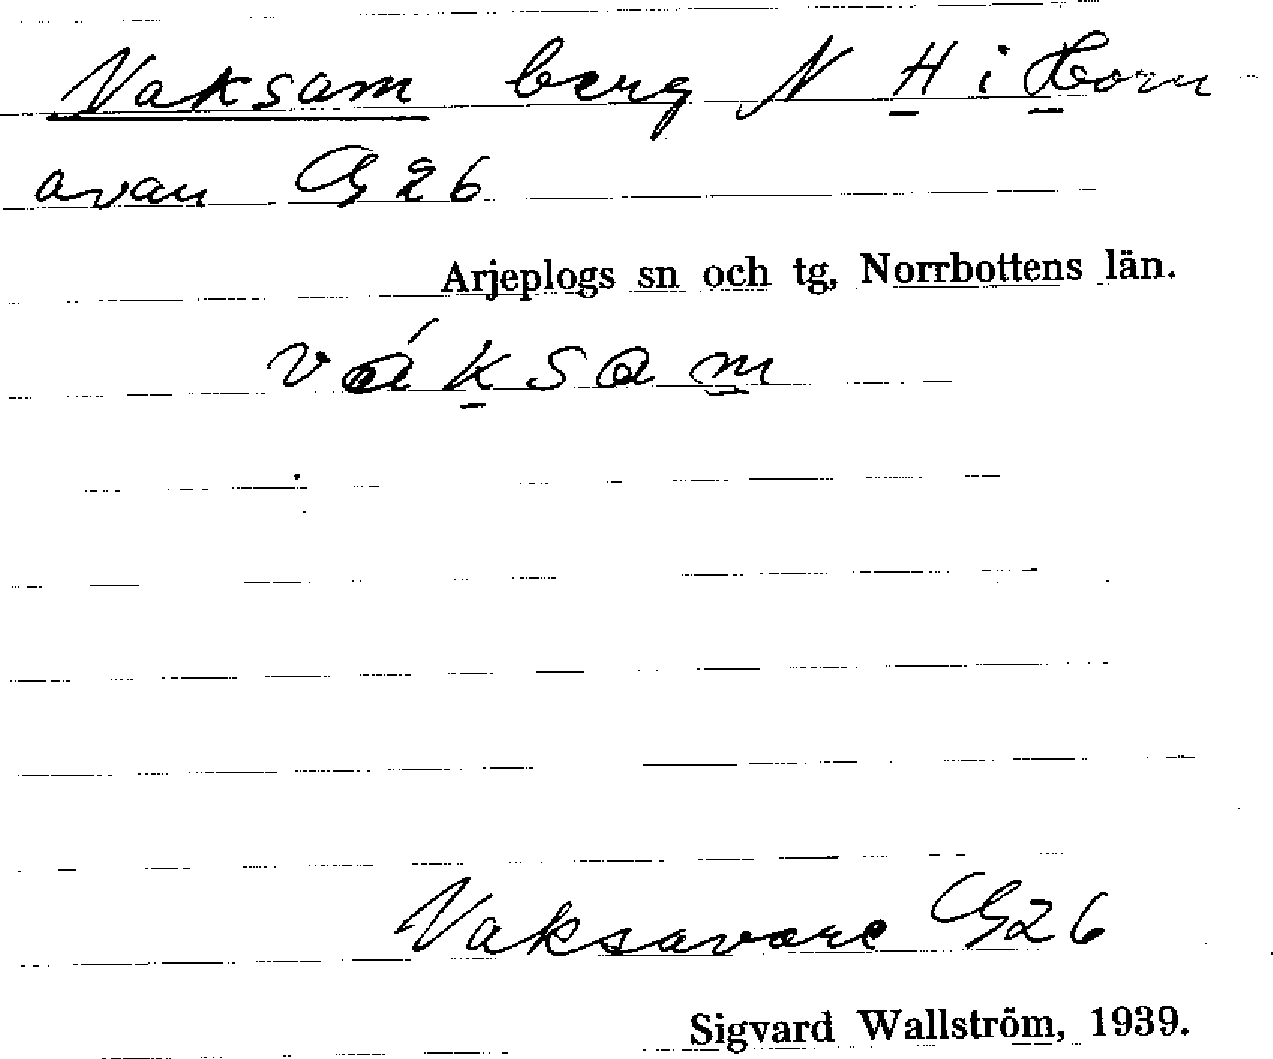 Vaksam berg N H i Horn
avan G 26
Arjeplogs sn och tg, Norrbottens län.
váksam
Vaksavare G 26
Sigvard Wallström, 1939.